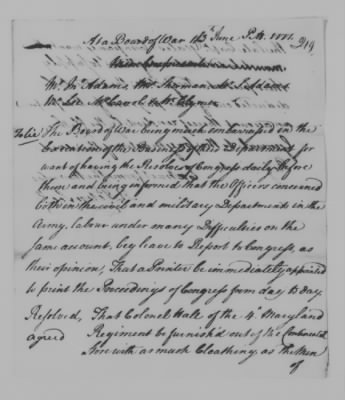 At a Board of War 13th June P.M. 1777. 219
Mr Jn Adams Mr Sherman
Mr Lee
To lie The Board of War being much embarrassed in the
Execution of the Business of the Department for
want of having the Resolves of Congress daily before
them and being informed that the Officers concerned
both in the civil and military Departments in the
Army, labour under many Difficulties on the
same account, beg leave to Report to Congress, as
their opinion, That a Printer be immediately appointed
to print the Proceedings of Congress from day to day
Resolved, That Colonel Hall of the 4th Maryland
agreed Regiment be furnish'd out of the Continental
Store with as much Cloathing as the Men
of